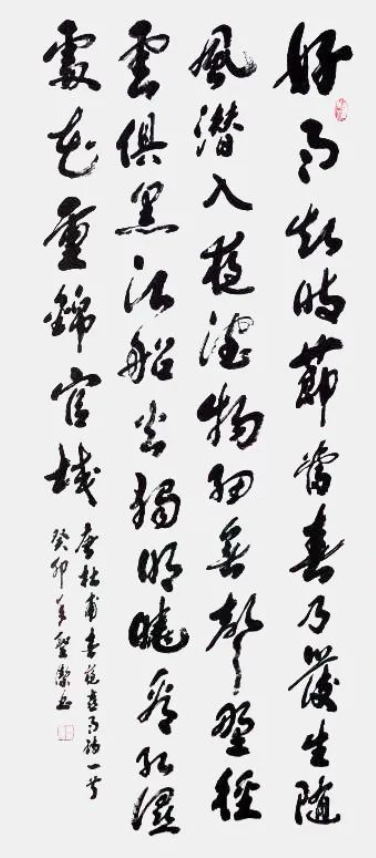 好雨知時節當春乃發生隨
風潜入夜潤物細無聲野徑
雲俱黑江船火獨明曉看紅濕
處花重錦官城
唐杜甫春夜喜雨詩一首
癸卯